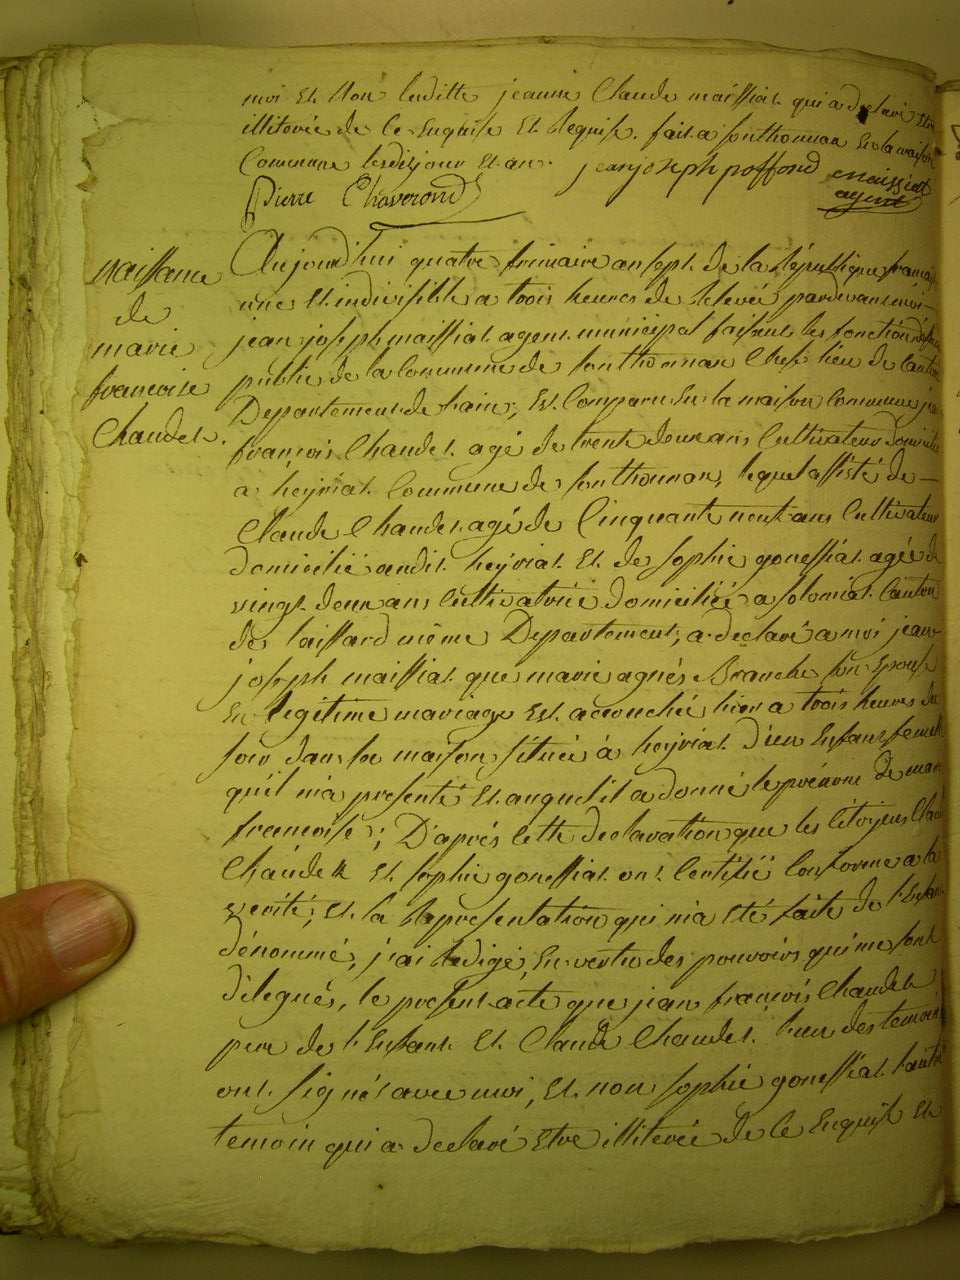 moi et non laditte jeanne Claude maissiat qui a declaré etre
illiterée de ce enquise et Requise. fait a sonthonnax en la maison
Commune lesdis jour et an. jean joseph poffond maissiat
agent
Pierre Chaverond
naissance
de
marie
francoise
Chaudet.
Aujourd'hui quatre frimaire an sept de la République française
une et indivisible a trois heures de Relevée pardevant moi
jean joseph maissiat agent municipal faisant les fonctions
public de la Commune de sonthonnax Chef lieu de Canton
Departement de l'ain, est Comparu en la maison Commune
françois Chaudet agé de trente deux ans Cultivateur domicilié
a heyriat Commune de sonthonnax, lequel assisté de
Claude Chaudet agé de Cinquante neuf ans Cultivateur
domicilié audit heyriat et de sophie goneffiat agée de
vingt deux ans Cultivatrice domiciliée a solomiat Canton
de laissard même Departement, a declaré a moi jean
joseph maissiat que marie agnés Branche son Epouse
en legitime mariage est accouchée hier a trois heures du
soir dans sa maison située à heyriat d'un Enfant femelle
qu'il m'a presenté et auquel il a donné le prénom de marie
francoise; D'aprés cette declaration que les Citoyens Claude
Chaudet et sophie goneffiat ont Certifié Conforme a la
verité, et la Representation qui m'a été faite de l'Enfant
dénommé, j'ai Redigé, en vertu des pouvoirs qui me sont
délegués, le present acte que jean francois Chaudet
pere de l'Enfant et Claude Chaudet l'un des temoins
ont signés avec moi, et non sophie goneffiat l'autre
temoin qui a declaré Etre illiterée de ce Enquise et